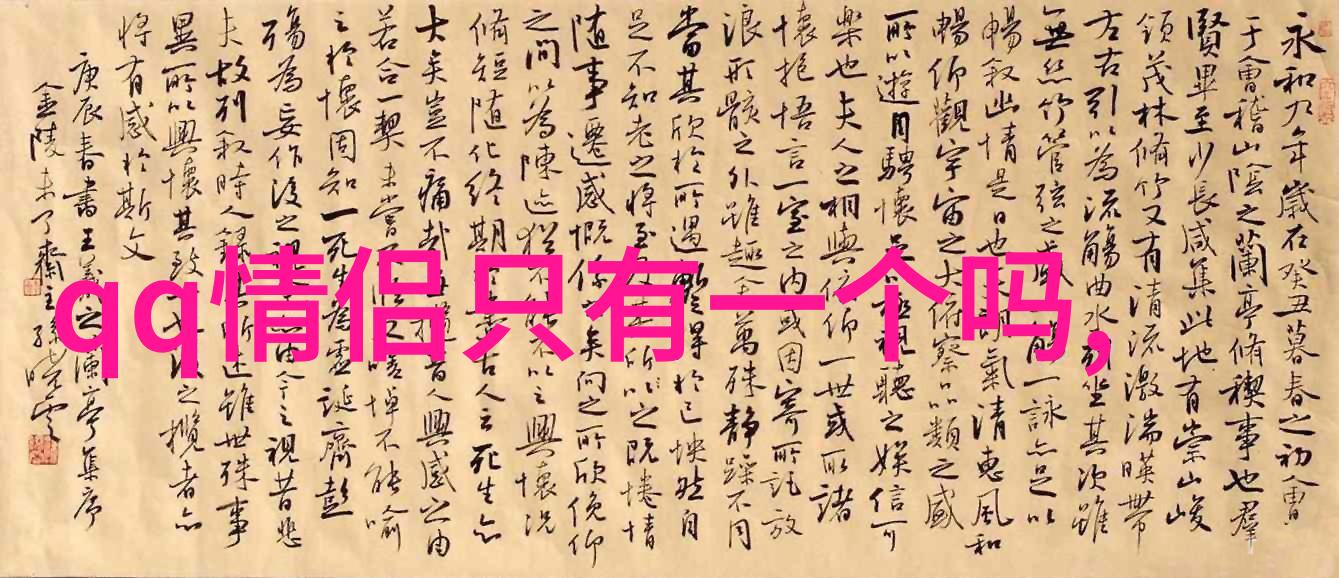 qq情侣只有一个吗,
永和九年歲在癸丑暮春之初會
于會稽山陰之蘭亭脩禊事也羣
賢畢至少長咸集此地有崇山峻
領茂林脩竹又有清流激湍暎帶
左右引以為流觴曲水列坐其次雖
無絲竹管弦之盛一觴一詠亦足以
暢敘幽情是日也天朗氣清惠風和
暢仰觀宇宙之大俯察品類之盛
所以遊目騁懷足以極視聽之娛信可
樂也夫人之相與俯仰一世或取諸
懷抱悟言一室之內或因寄所託放
浪形骸之外雖趣舍萬殊靜躁不同
當其欣於所遇暫得於己怏然自
足不知老之將至及其所以之既惓情
隨事遷感慨係之矣向之所欣俛仰
之間以為陳迹猶不能不以之興懷況
脩短隨化終期於盡古人云死生亦
大矣豈不痛哉每攬昔人興感之由
若合一契未嘗不臨文嗟悼不能喻
之於懷固知一死生為虛誕齊彭
殤為妄作後之視今亦由今之視昔悲
夫故列敘時人錄其所述雖世殊事
異所以興懷其致一也後之攬者亦
將有感於斯文
庚辰春書王羲之蘭亭集序
金陵未了齋主孫曉雲